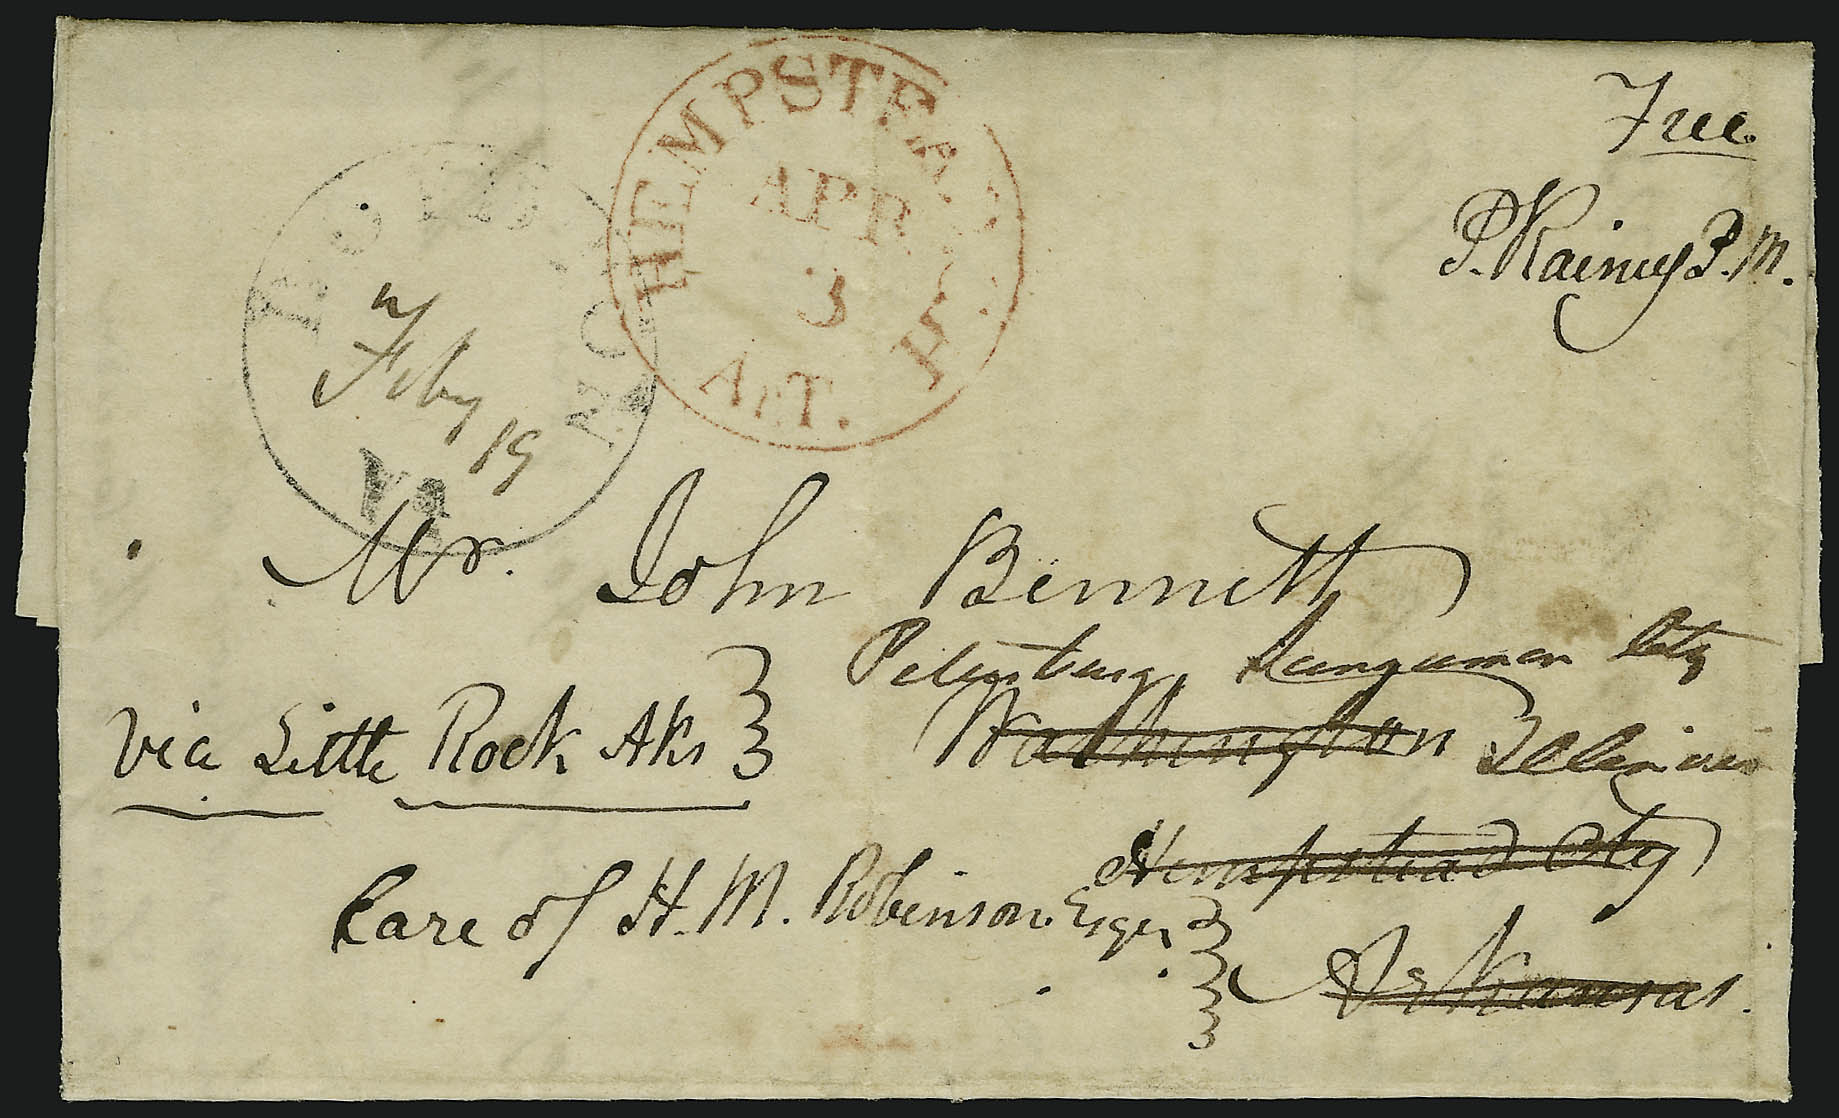 Free
P. Rainey P. M.
HEMPSTEAD C. H.
APR
3
ArT.
Feby 19
Va
Mr. John Bennett
Petersburg Sangamon Cty
Via Little Rock Aks
Washington Illinois
Hempstead Cty
Care of H. M. Robinson Esqr
Arkansas.